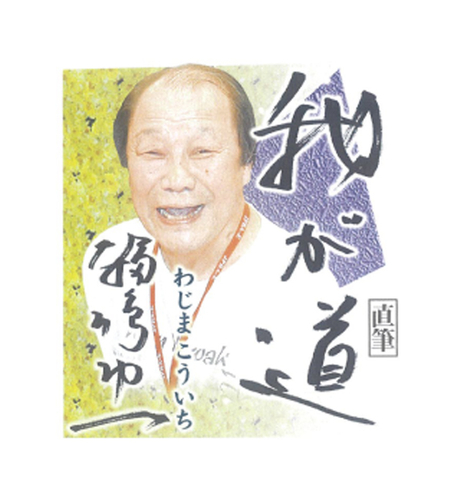 我が道
直筆
わじまこういち
輪島功一
oak